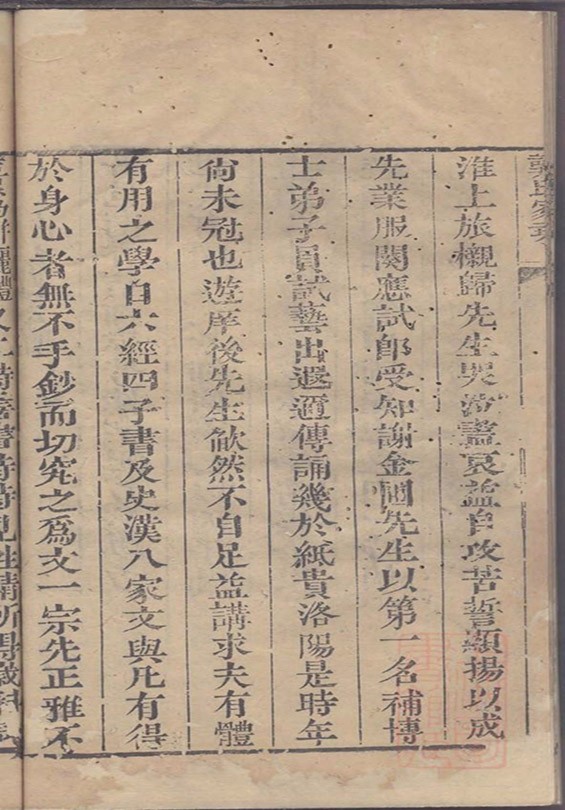 淮上旅櫬歸先生哭泣盡哀益自攻苦誓顯揚以成
先業服闋應試郎受知謝金圃先生以第一名補博
士弟子員試藝出遐邇傳誦幾於紙貴洛陽是時年
尚未冠也遊庠後先生欿然不自足益講求夫有體
有用之學自六經四子書及史漢八家文與凡有得
於身心者無不手鈔而切究之爲文一宗先正雅不